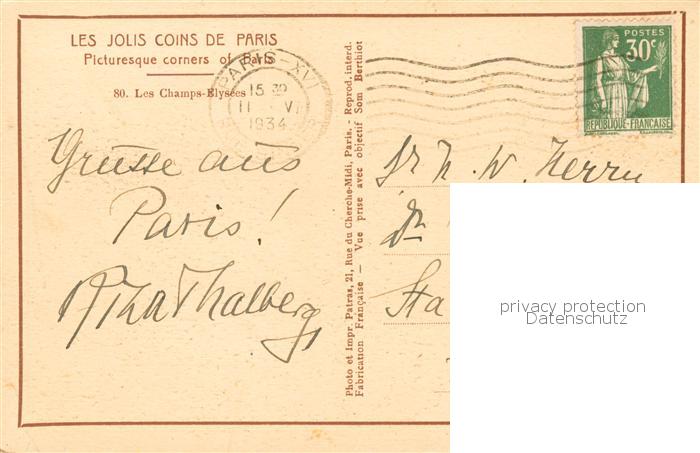 LES JOLIS COINS DE PARIS
Picturesque corners of Paris
80. Les Champs-Elysées
PARIS-XVI
15 30
11 VI
1934
POSTES
30c
REPUBLIQUE-FRANÇAISE
Grüsse aus
Paris!
Thalberg
Photo et Impr. Patras, 21, Rue du Cherche-Midi, Paris. - Reprod. interd.
Fabrication Française — Vue prise avec objectif Som Berthiot
W. Herrn
Dr
Sta
privacy protection
Datenschutz